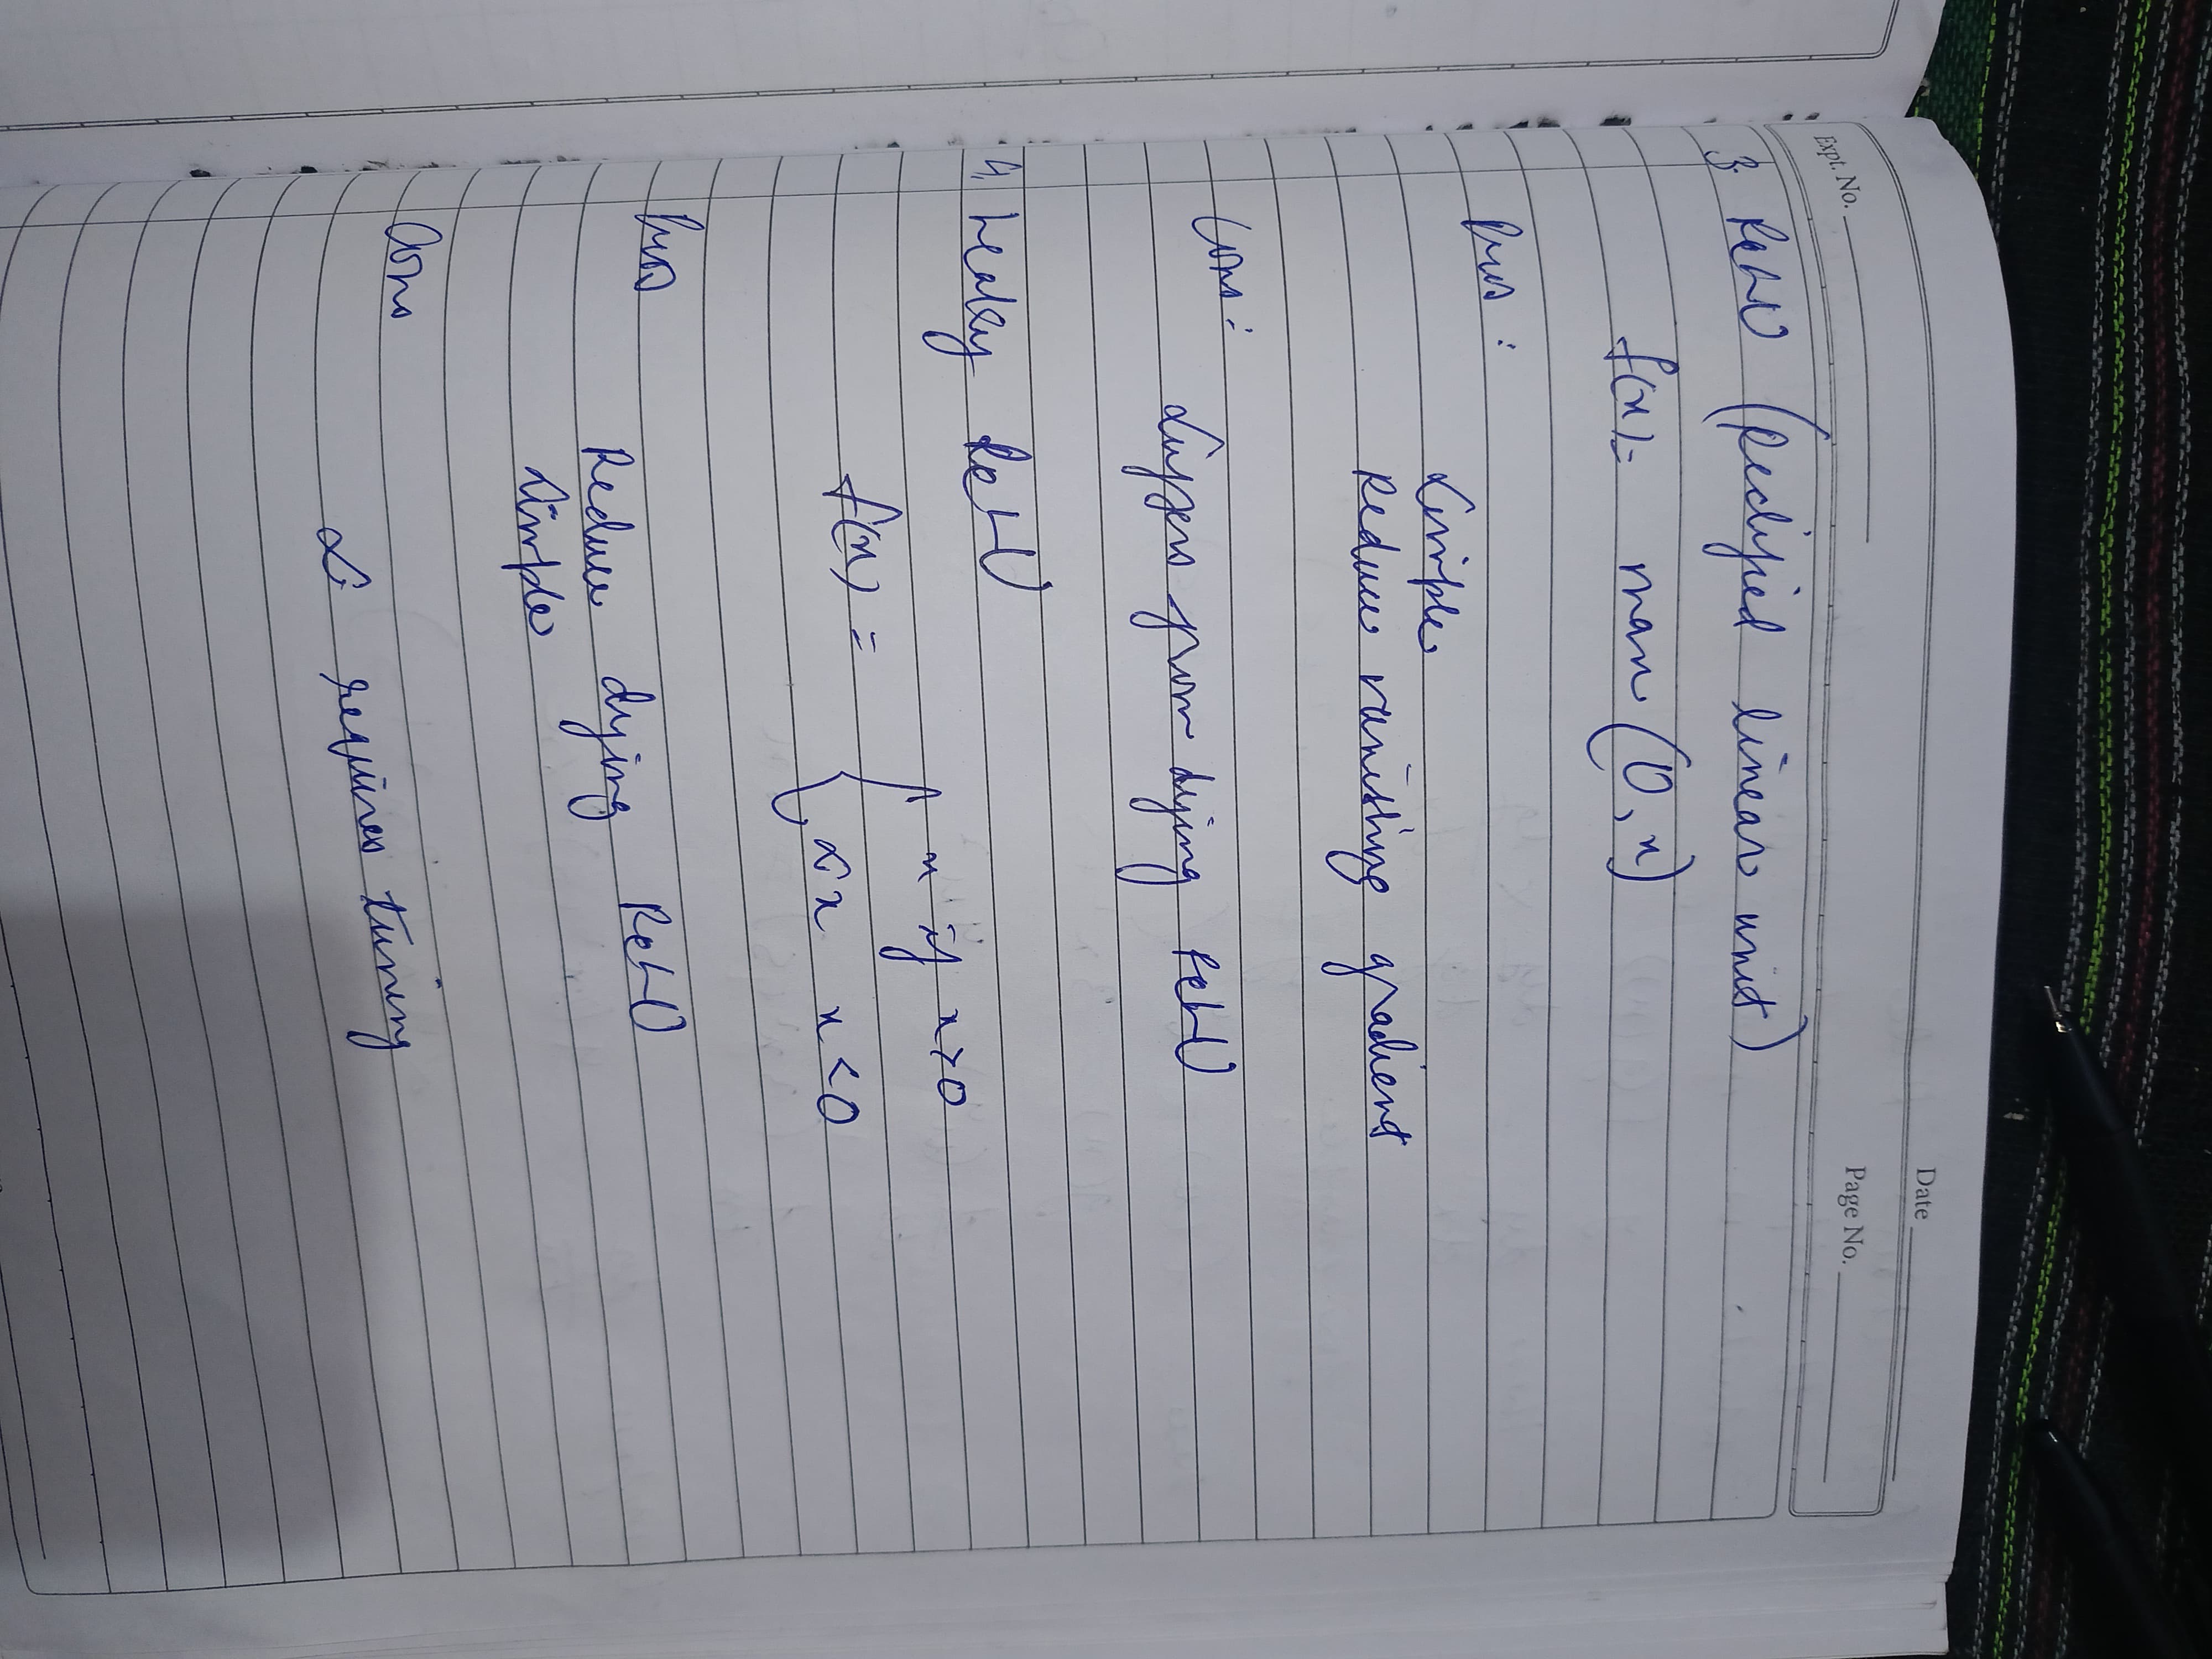 Date
Expt. No.
Page No.
3. ReLU (Rectified linear unit)
f(x) = max (0, x)
Pros :
Simple
Reduce vanishing gradient
Cons :
Suffers from dying ReLU
4. Leaky ReLU
f(x) = { x if x>0
αx x<0
Pros
Reduce dying ReLU
Simple
Cons
α requires tuning